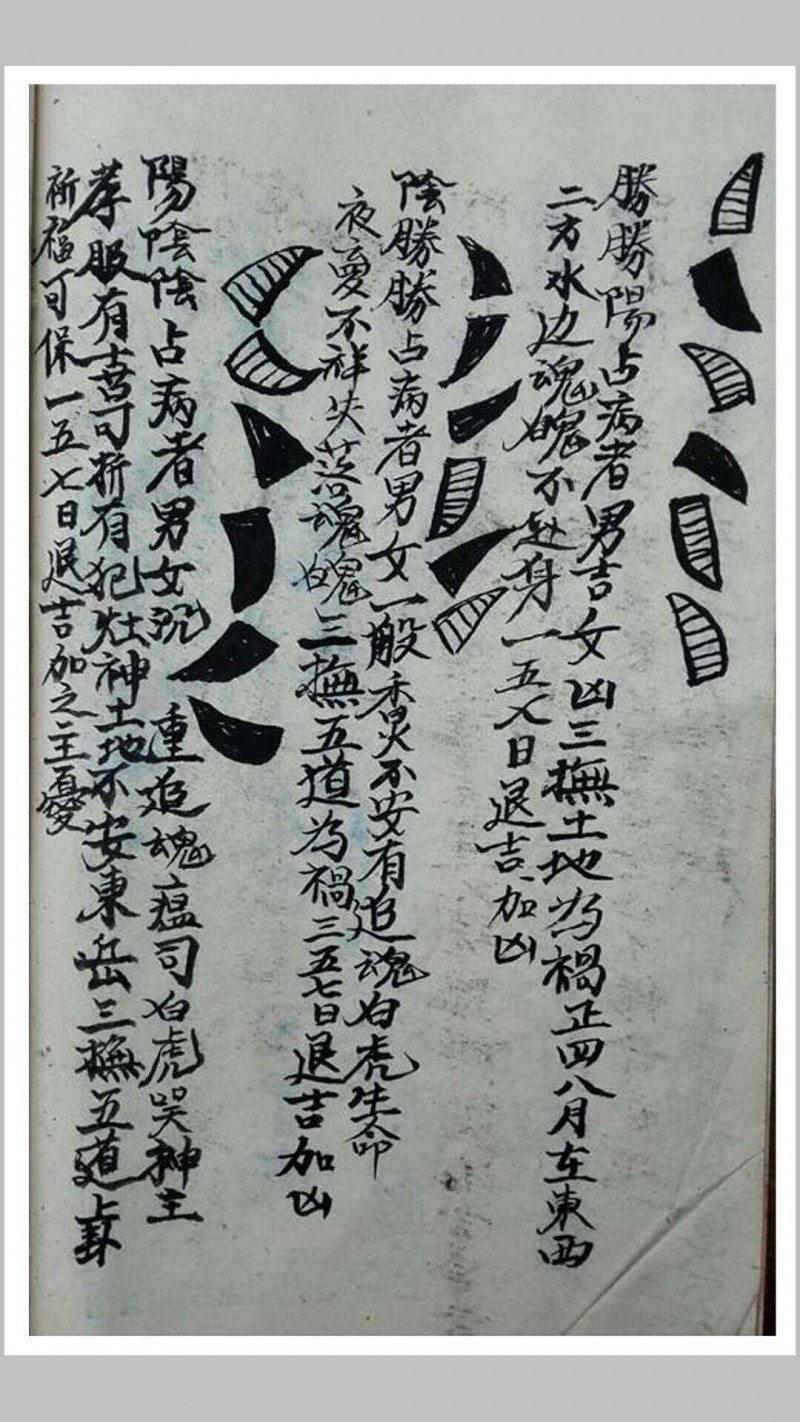 勝勝陽占病者男吉女凶三撫土地為禍正四八月在東西
二方水边魂魄不赴身一五七日退吉加凶
陰勝勝占病者男女一般香火不安有追魂白虎生命
夜夢不祥失落魂魄三撫五道為禍三五七日退吉加凶
陽陰陰占病者男女沉重追魂瘟司白虎哭神主
孝服有喜可祈有犯灶神土地不安東岳三撫五道占卦
祈福可保一五七日退吉加之主憂